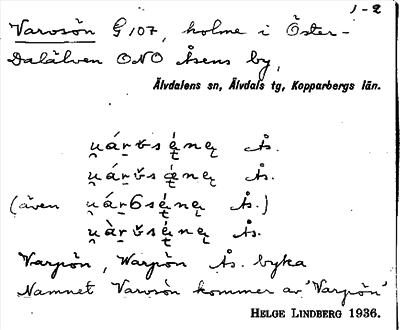 1-2
Varosön G 107, holme i Öster-
Dalälven ONO Åsens by,
Älvdalens sn, Älvdals tg, Kopparbergs län.
Ås.
Ås.
(även Ås.)
Ås.
Varpön, Warpön Ås. byka
Namnet Varosön kommer av "Varpön"
HELGE LINDBERG 1936.